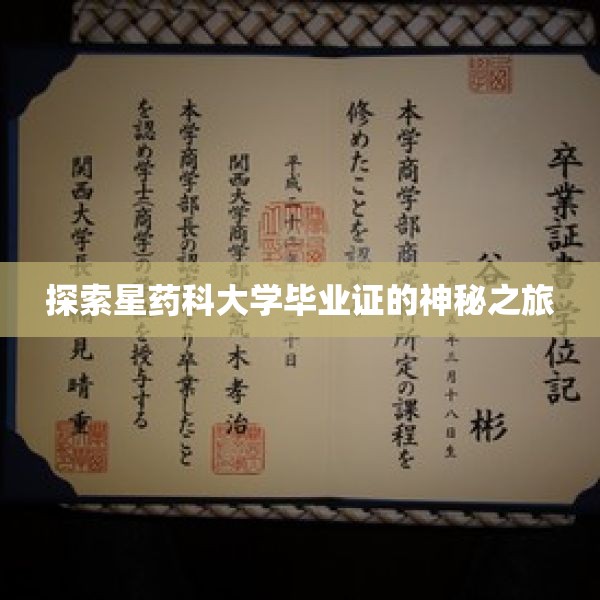 探索星药科大学毕业证的神秘之旅
卒業証書学位記
谷 彬
年三月十八日生
本学商学部商学 所定の課程を
修めたことを認
平成二十二年 十日
関西大学商学部 木孝治
本学商学部長の認定により卒業したこと
を認め学士(商学)の を授与する
関西大学長 見晴重